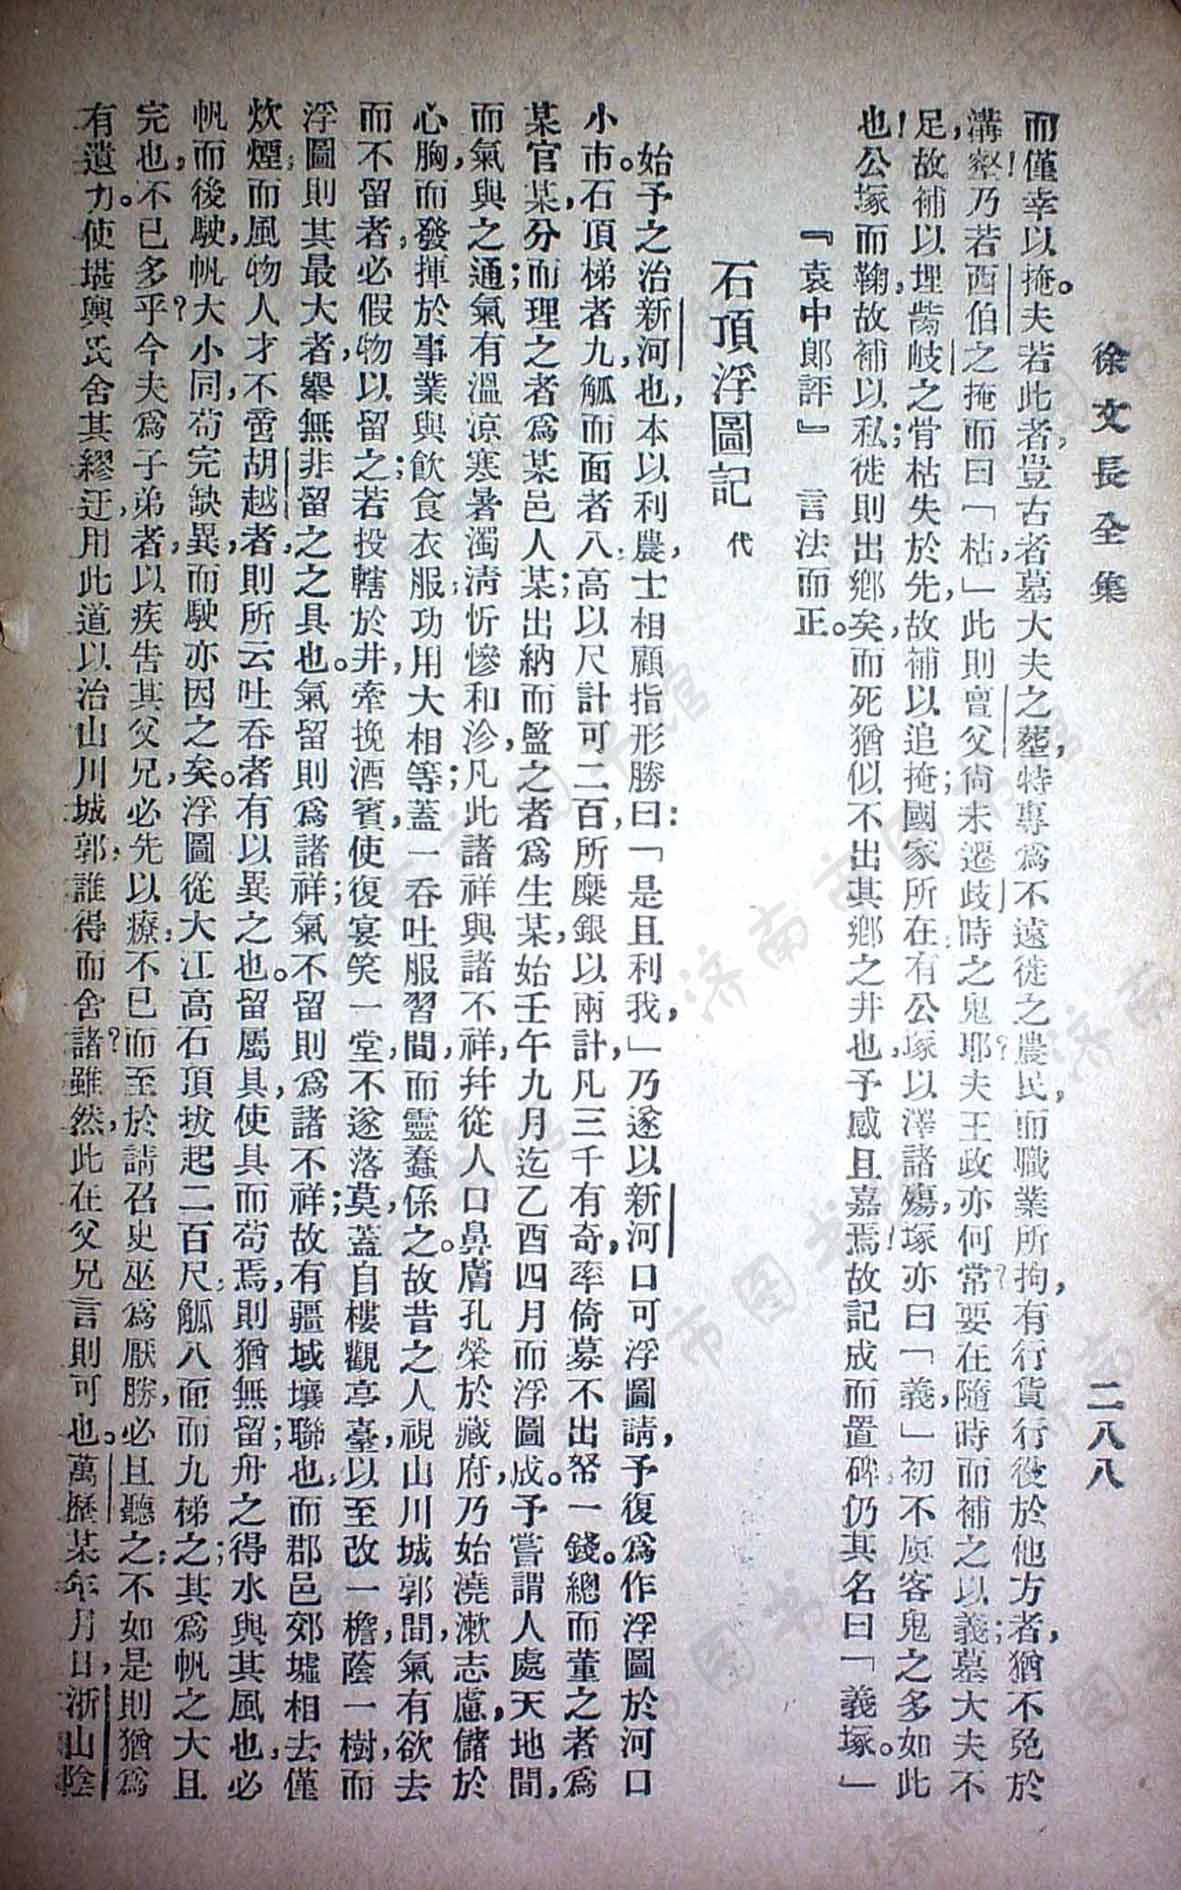 徐文長全集
二八八
而僅幸以掩。夫若此者，豈古者墓大夫之葬，特專爲不遠徙之農民，而職業所拘，有行貨行役於他方者，猶不免於
溝壑！乃若西伯之掩而曰「枯」，此則亶父尙未遷歧時之鬼耶？夫王政亦何常？要在隨時而補之以義；墓大夫不
足，故補以埋胔；岐之骨枯失於先，故補以追掩；國家所在，有公塚以澤諸殤，塚亦曰「義」，初不虞客鬼之多如此
也！公塚而鞠，故補以私；徙則出鄉矣，而死猶似不出其鄉之井也，予感且嘉焉！故記成而置碑，仍其名曰「義塚。」
『袁中郞評』　言法而正。
石頂浮圖記　代
始予之治新河也，本以利農，士相顧指形勝曰：「是且利我，」乃遂以新河口可浮圖請，予復爲作浮圖於河口
小市。石頂梯者九，觚而面者八，高以尺計可二百，所糜銀以兩計，凡三千有奇，率倚募不出帑一錢。總而董之者爲
某官某，分而理之者爲某邑人某，出納而監之者爲生某，始壬午九月迄乙酉四月而浮圖成。予嘗謂人處天地間，
而氣與之通，氣有溫涼寒暑濁淸忻慘和沴；凡此諸祥與諸不祥，幷從人口鼻膚孔縈於藏府，乃始澆漱志慮，儲於
心胸，而發揮於事業；與飮食衣服，功用大相等，蓋一吞吐服習間，而靈蠢係之。故昔之人，視山川城郭間，氣有欲去
而不留者，必假物以留之，若投轄於井，牽挽酒賓，使復宴笑一堂，不遂落莫；蓋自樓觀亭臺，以至改一檐，蔭一樹，而
浮圖則其最大者，舉無非留之之具也。氣留則爲諸祥；氣不留則爲諸不祥，故有疆域壤聯也，而郡邑郊墟相去僅
炊煙，而風物人才不啻胡越者，則所云吐吞者有以異之也。留屬具，使具而苟焉，則猶無留；舟之得水與其風也，必
帆而後駛，帆大小同，苟完缺異，而駛亦因之矣。浮圖從大江高石頂拔起二百尺，觚八面而九梯之；其爲帆之大且
完也，不已多乎？今夫爲子弟者，以疾吿其父兄，必先以療，不已而至於請召史巫爲厭勝，必且聽之；不如是則猶爲
有遺力。使堪輿氏舍其繆迂，用此道以治山川城郭，誰得而舍諸？雖然，此在父兄言則可也。萬曆某年月日，浙山陰